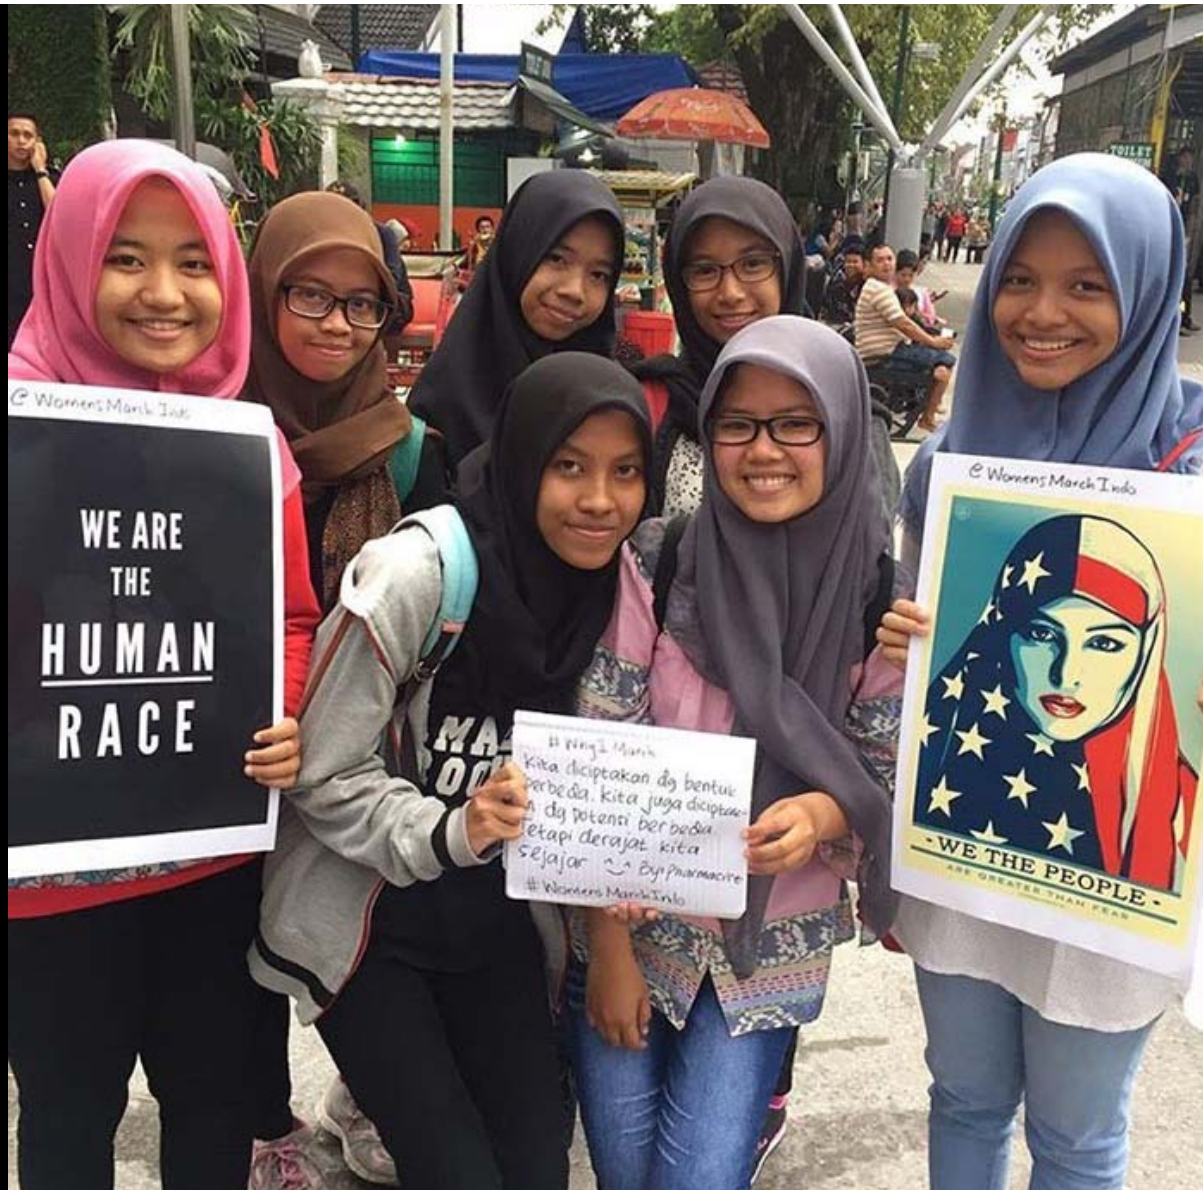 @ WomensMarch Indo
WE ARE
THE
HUMAN
RACE
# Why I March
Kita diciptakan dg bentuk
berbeda. Kita juga diciptaka-
n dg potensi berbeda.
Tetapi derajat kita
sejajar By:
# WomensMarchIndo
@ WomensMarchIndo
- WE THE PEOPLE -
ARE GREATER THAN FEAR
TOILET